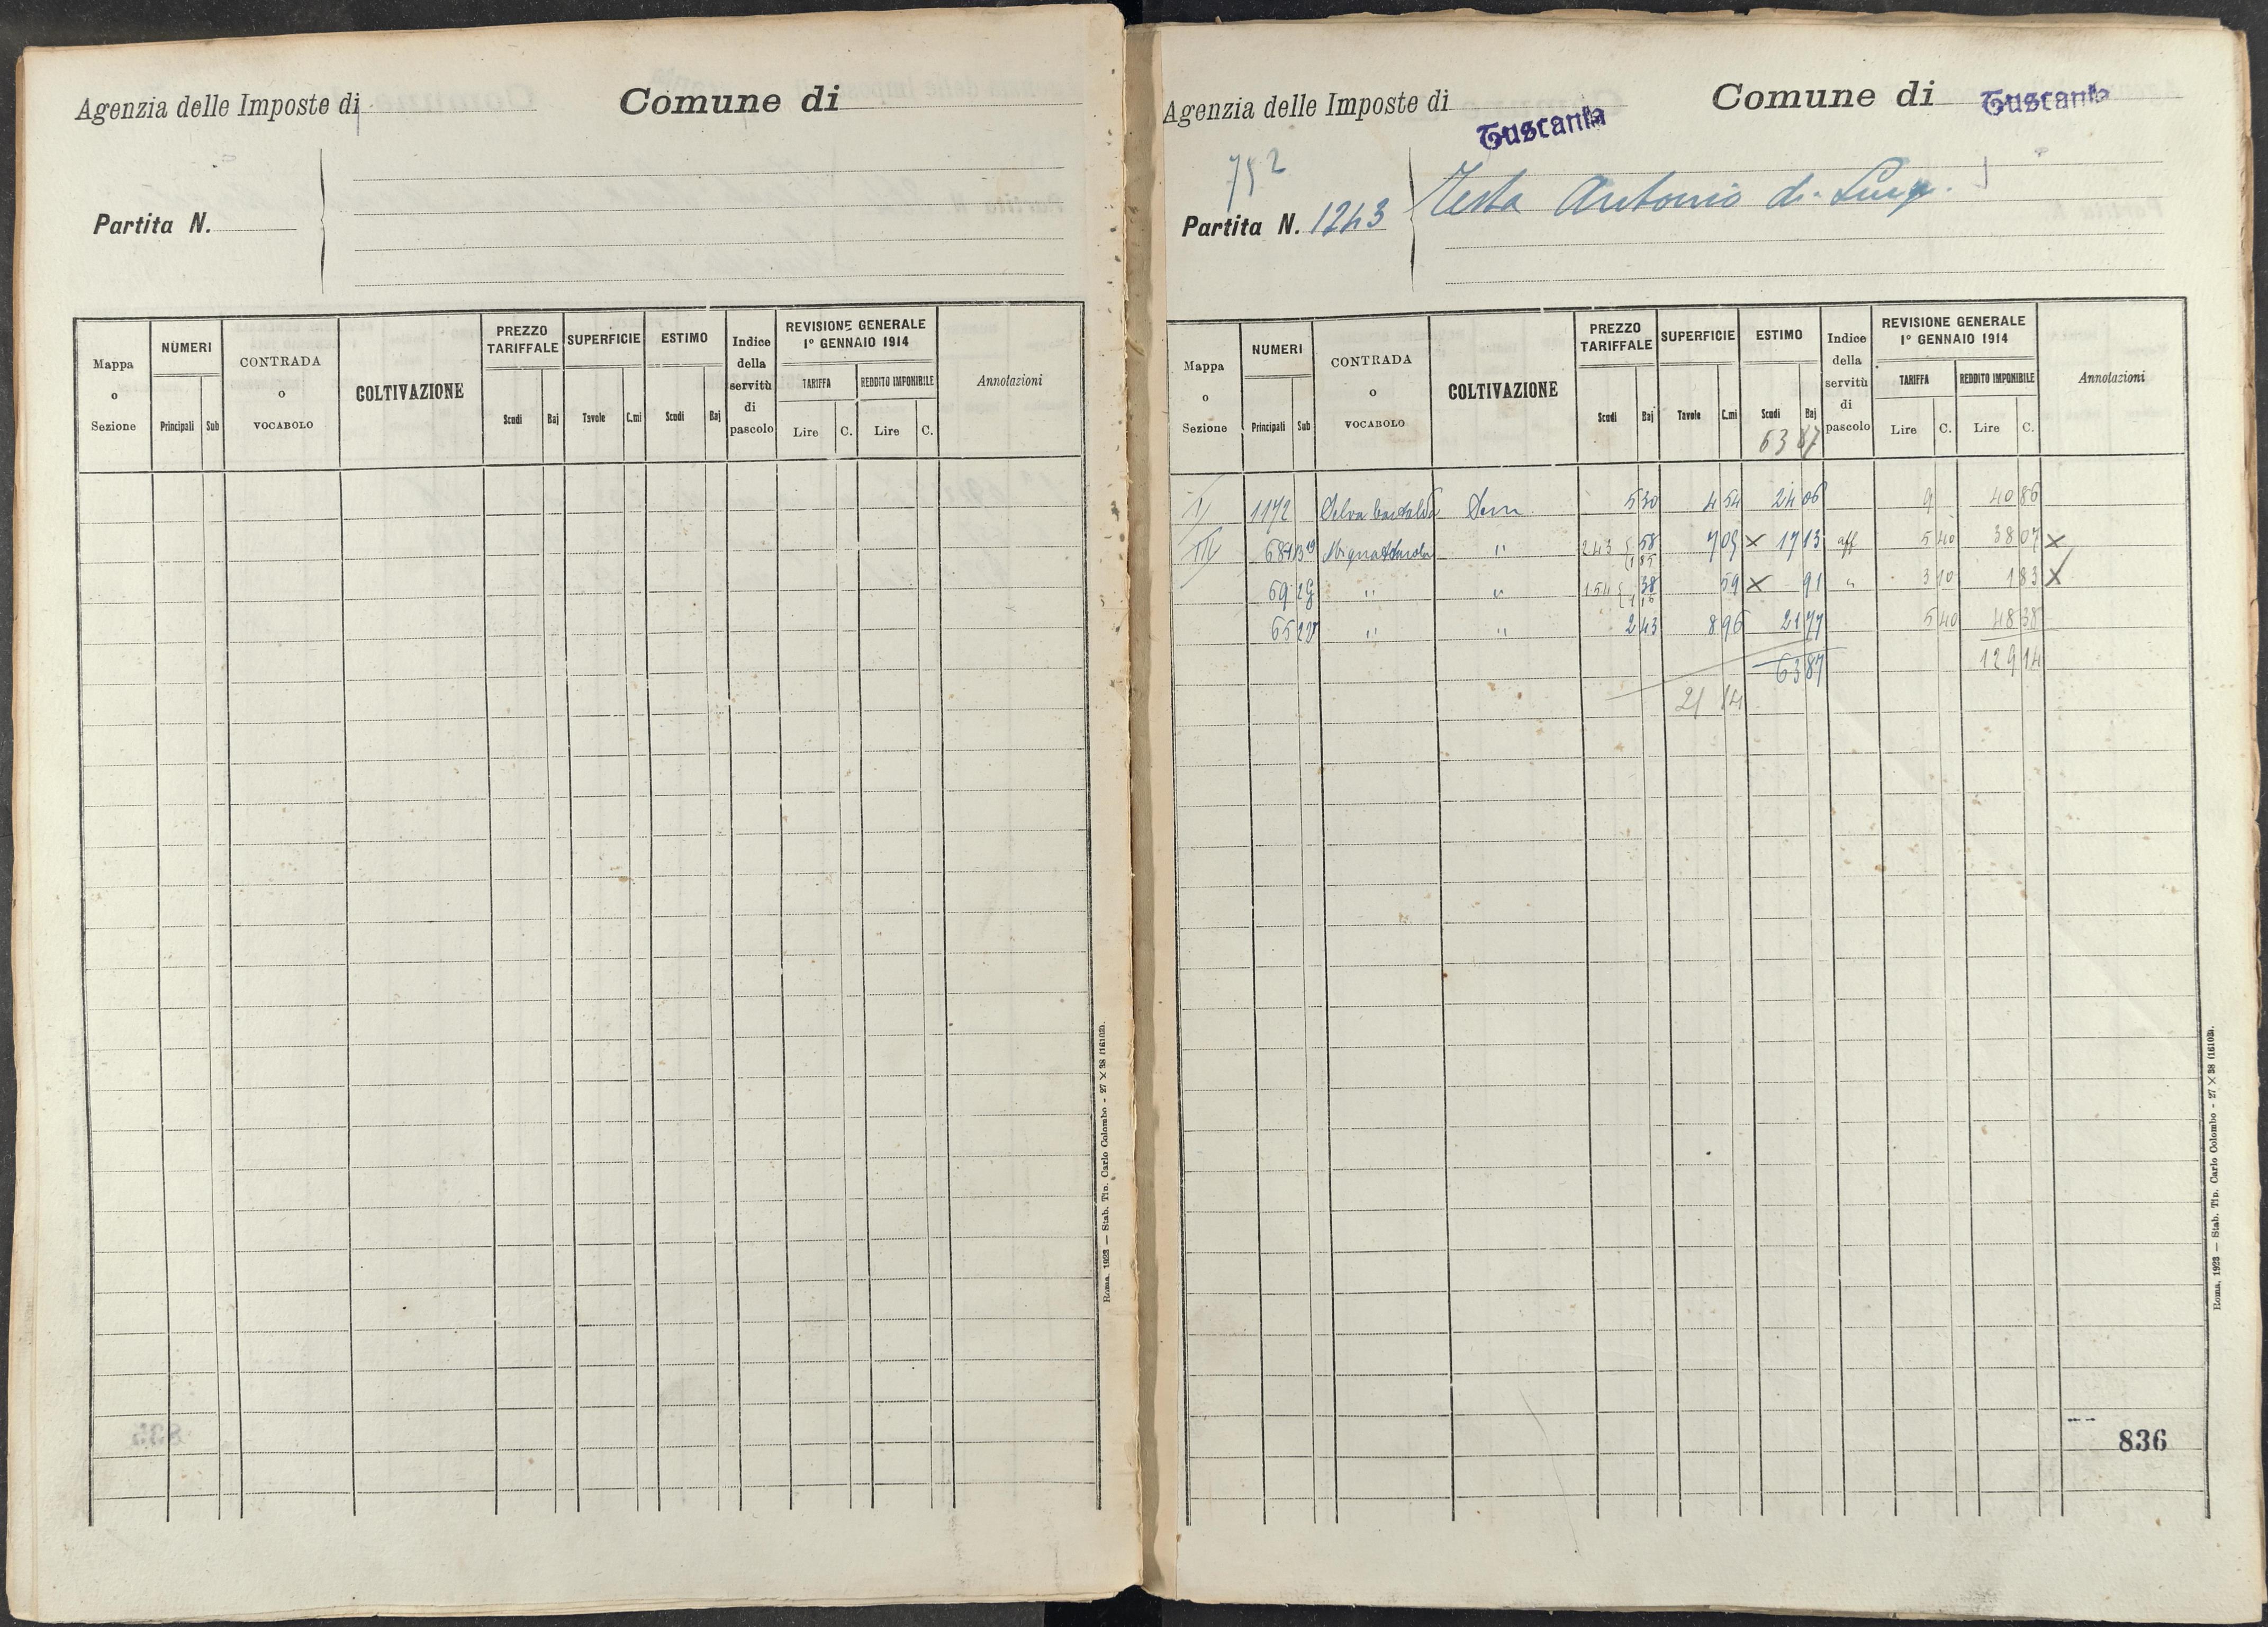 Agenzia delle Imposte di
Comune di
Partita N.
Mappa o Sezione
NUMERI
Principali
Sub
CONTRADA o VOCABOLO
COLTIVAZIONE
PREZZO TARIFFALE
Scudi
Baj
SUPERFICIE
Tavole
C.mi
ESTIMO
Scudi
Baj
Indice della servitù di pascolo
REVISIONE GENERALE
1° GENNAIO 1914
TARIFFA
REDDITO IMPONIBILE
Lire
C.
Lire
C.
Annotazioni
Roma, 1923 — Stab. Tip. Carlo Colombo - 27 × 38 (16102).
Agenzia delle Imposte di Tuscania
Comune di Tuscania
752
Partita N. 1243
Testa Antonio di Luigi
Mappa o Sezione
NUMERI
Principali
Sub
CONTRADA o VOCABOLO
COLTIVAZIONE
PREZZO TARIFFALE
Scudi
Baj
SUPERFICIE
Tavole
C.mi
ESTIMO
Scudi
Baj
63 87
Indice della servitù di pascolo
REVISIONE GENERALE
1° GENNAIO 1914
TARIFFA
REDDITO IMPONIBILE
Lire
C.
Lire
C.
Annotazioni
1172 Selva 5 30 4 54 24 06 9 40 86
III " 2 43 58 1 85 7 05 × 17 13 aff 5 40 38 07 ×
69 " " 1 54 38 1 16 59 × 91 " 3 10 1 83 ×
" " 2 43 8 96 21 77 5 40 48 38
63 87 129 14
21 14
836
Roma, 1923 — Stab. Tip. Carlo Colombo - 27 × 38 (16102).